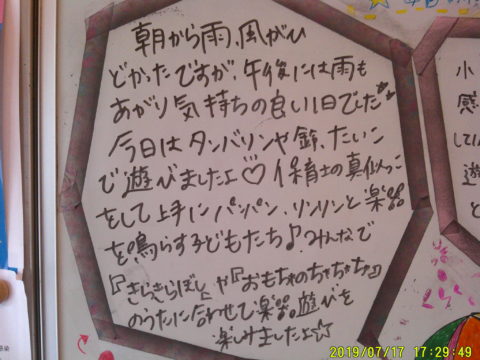 朝から雨、風がひ
どかったですが、午後には雨も
あがり気持ちの良い1日でした
今日はタンバリンや鈴、たいこ
で遊びましたよ♡保育士の真似っこ
をして上手にパンパン、リンリンと楽器
を鳴らす子どもたち♪みんなで
『きらきらぼし』や『おもちゃのちゃちゃちゃ』
のうたに合わせて楽器遊びを
楽しみましたよ☆
小
感
して
遊
と
2019/07/17 17:29:49